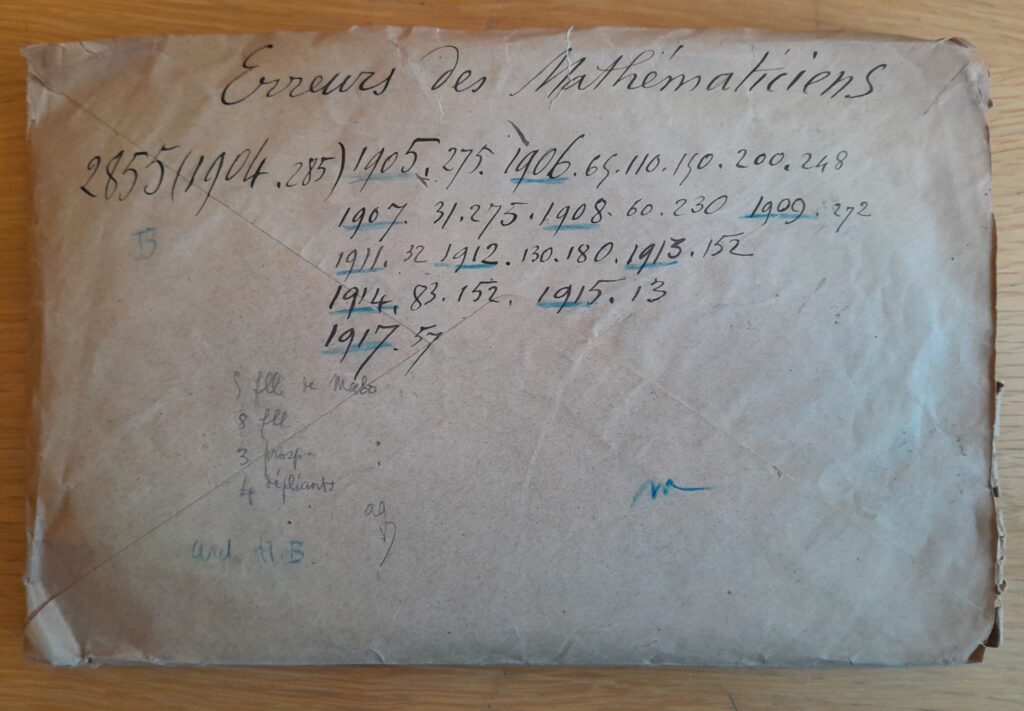 Erreurs des Mathématiciens
2855 (1904. 285) 1905. 275. 1906. 65. 110. 150. 200. 248
1907. 31. 275. 1908. 60. 230 1909. 272
1911. 32 1912. 130. 180. 1913. 152
1914. 83. 152. 1915. 13
1917. 57
B
5 fll de
8 fll
3 prosp.
4 dépliants
ag